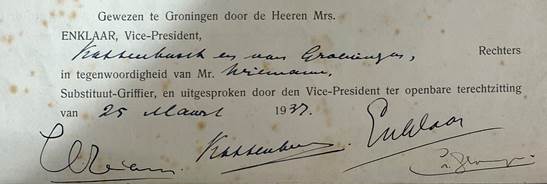 Gewezen te Groningen door de Heeren Mrs.
ENKLAAR, Vice-President,
Kassenbusch en van Groeningen, Rechters
in tegenwoordigheid van Mr. Wiemann,
Substituut-Griffier, en uitgesproken door den Vice-President ter openbare terechtzitting
van 25 Maart 1937.
Enklaar